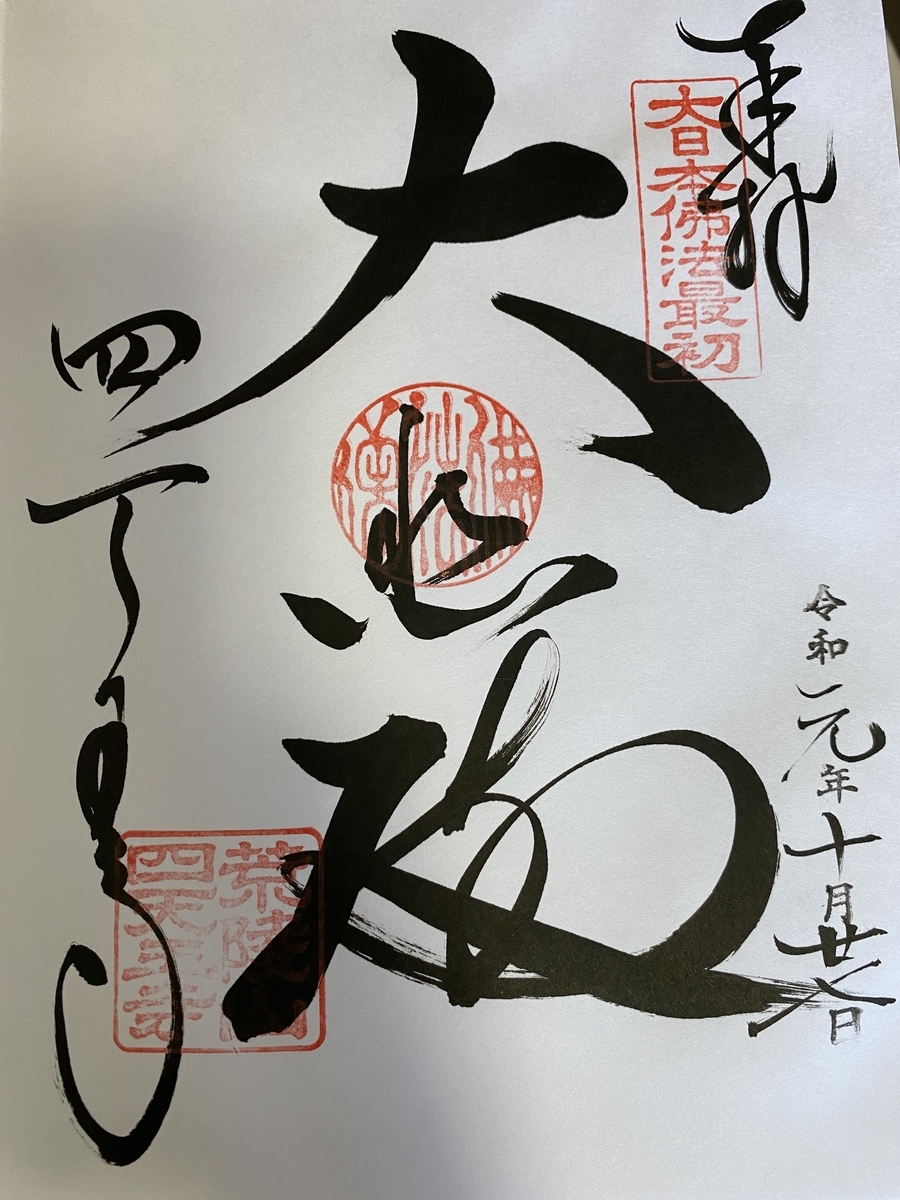 奉拝
大日本佛法最初
令和元年十月廿八日
大悲殿
佛法僧
四天王寺
荒陵山
四天王寺